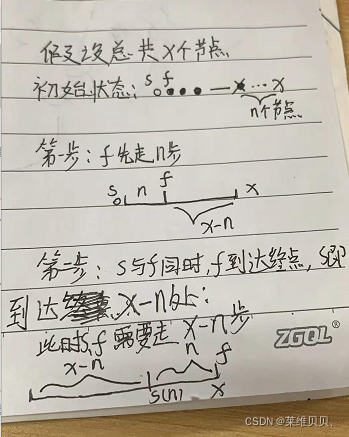 假设总共x个节点
初始状态: s f — x … x
n个节点
第一步: f先走n步
s n f x
x-n
第二步: s与f同时, f到达终点, s即
到达 x-n处:
此时s,f需要走 x-n步
x-n n f
s(n) x
ZGQL
CSDN @莱维贝贝、